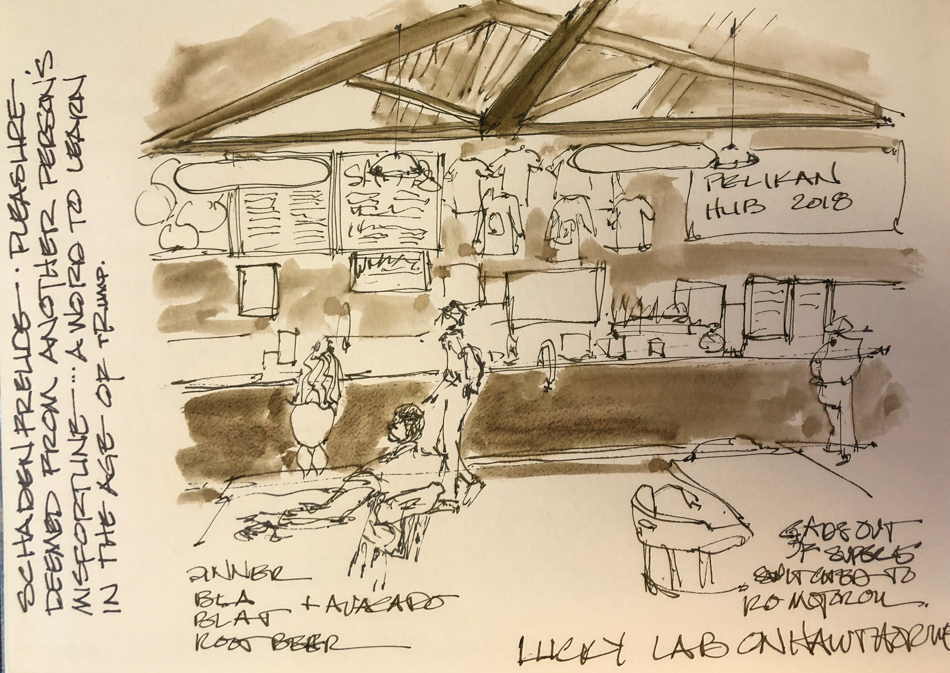 SCHADENFREUDE - PLEASURE -
DEEMED FROM ANOTHER PERSON'S
MISFORTUNE.... A WORD TO LEARN
IN THE AGE OF TRUMP.
PELIKAN
HUB 2018
DINNER
BLA
BLAT + AVACADO
ROOT BEER
OUT
OF SUPER 5
SWITCHED TO
LUCKY LAB ON HAWTHORNE